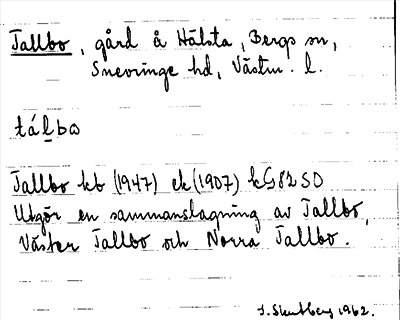 Tallbo, gård å Hälsta, Bergs sn,
Snevringe hd, Västm. l.
tálbω
Tallbo kb (1947) ek (1907) kG82SO
Utgör en sammanslagning av Tallbo,
Väster Tallbo och Norra Tallbo.
1962.